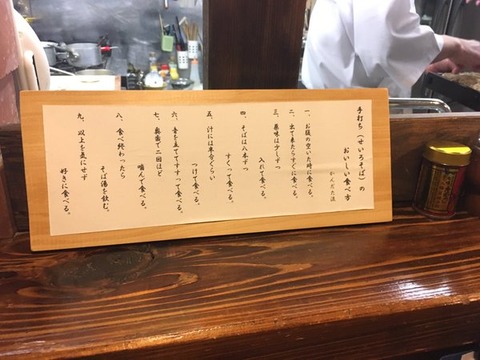 手打ち(せいろそば)の
おいしい食べ方
かんだた流
一、お腹の空いた時に食べる。
二、出て来たらすぐに食べる。
三、薬味は少しずつ
入れて食べる。
四、そばは八本ずつ
すくって食べる。
五、汁には半分くらい
つけて食べる。
六、音を立ててすすって食べる。
七、奥歯で二回ほど
噛んで食べる。
八、食べ終わったら
そば湯を飲む。
九、以上を気にせず
好きに食べる。